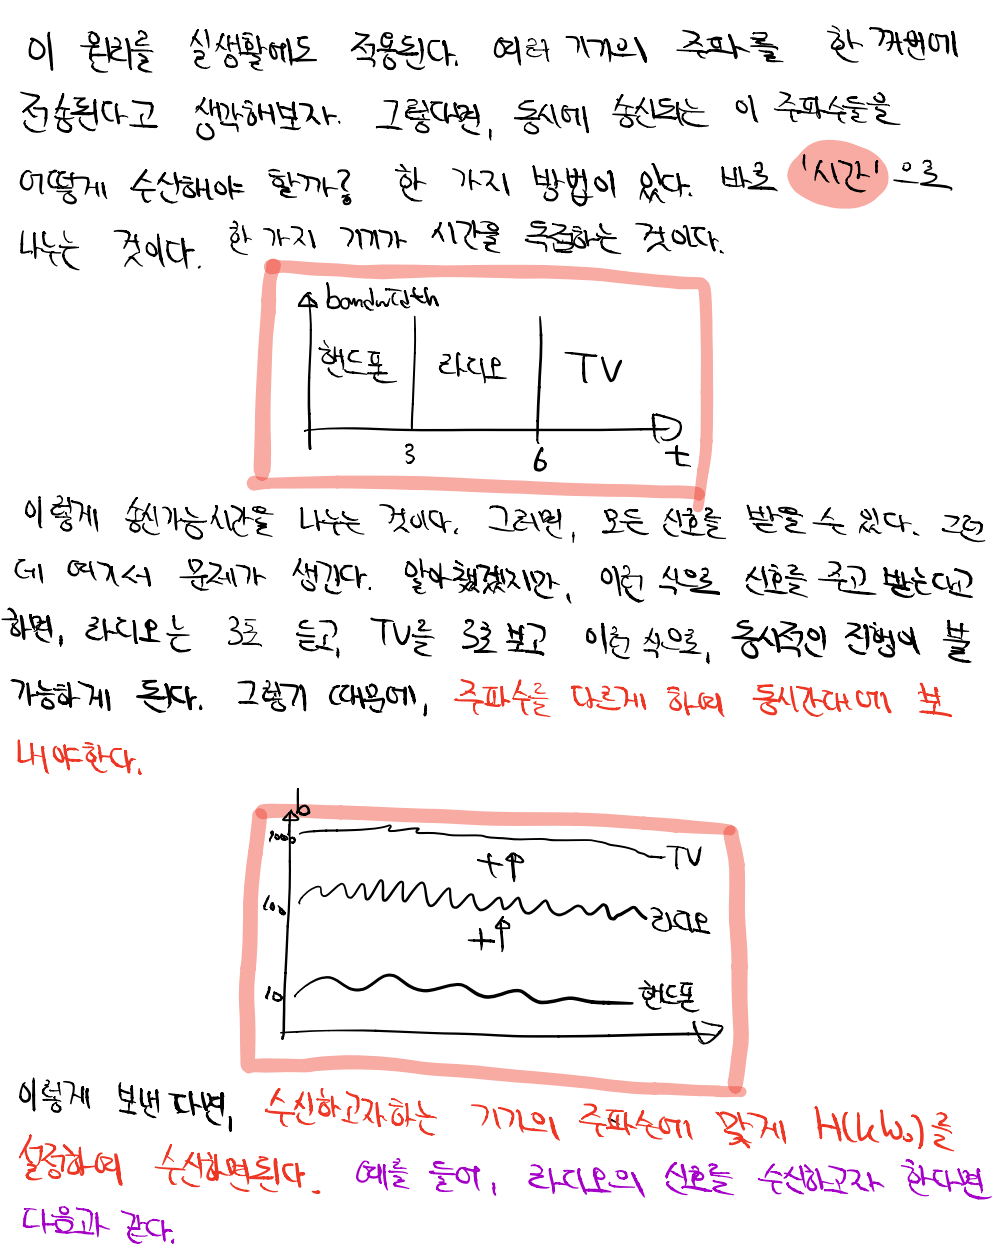 이 원리를 실생활에도 적용된다. 여러 기기의 주파를 한꺼번에
전송된다고 생각해보자. 그렇다면, 동시에 송신되는 이 주파수들을
어떻게 수신해야 할까? 한 가지 방법이 있다. 바로 '시간'으로
나누는 것이다. 한 가지 기기가 시간을 독점하는 것이다.
bandwidth
핸드폰 라디오 TV
3 6 t
이렇게 송신가능시간을 나누는 것이다. 그러면, 모든 신호를 받을 수 있다. 그런
데 여기서 문제가 생긴다. 알아챘겠지만, 이런 식으로 신호를 주고 받는다고
하면, 라디오는 3초 듣고, TV를 3초 보고 이런 식으로, 동시적인 진행이 불
가능하게 된다. 그렇기 때문에, 주파수를 다르게 하여 동시간대에 보
내야한다.
b
1000 TV
+↑
100 라디오
+↑
10 핸드폰
이렇게 보낸다면, 수신하고자하는 기기의 주파수에 맞게 H(kω₀)를
설정하여 수신하면된다. 예를 들어, 라디오의 신호를 수신하고자 한다면
다음과 같다.